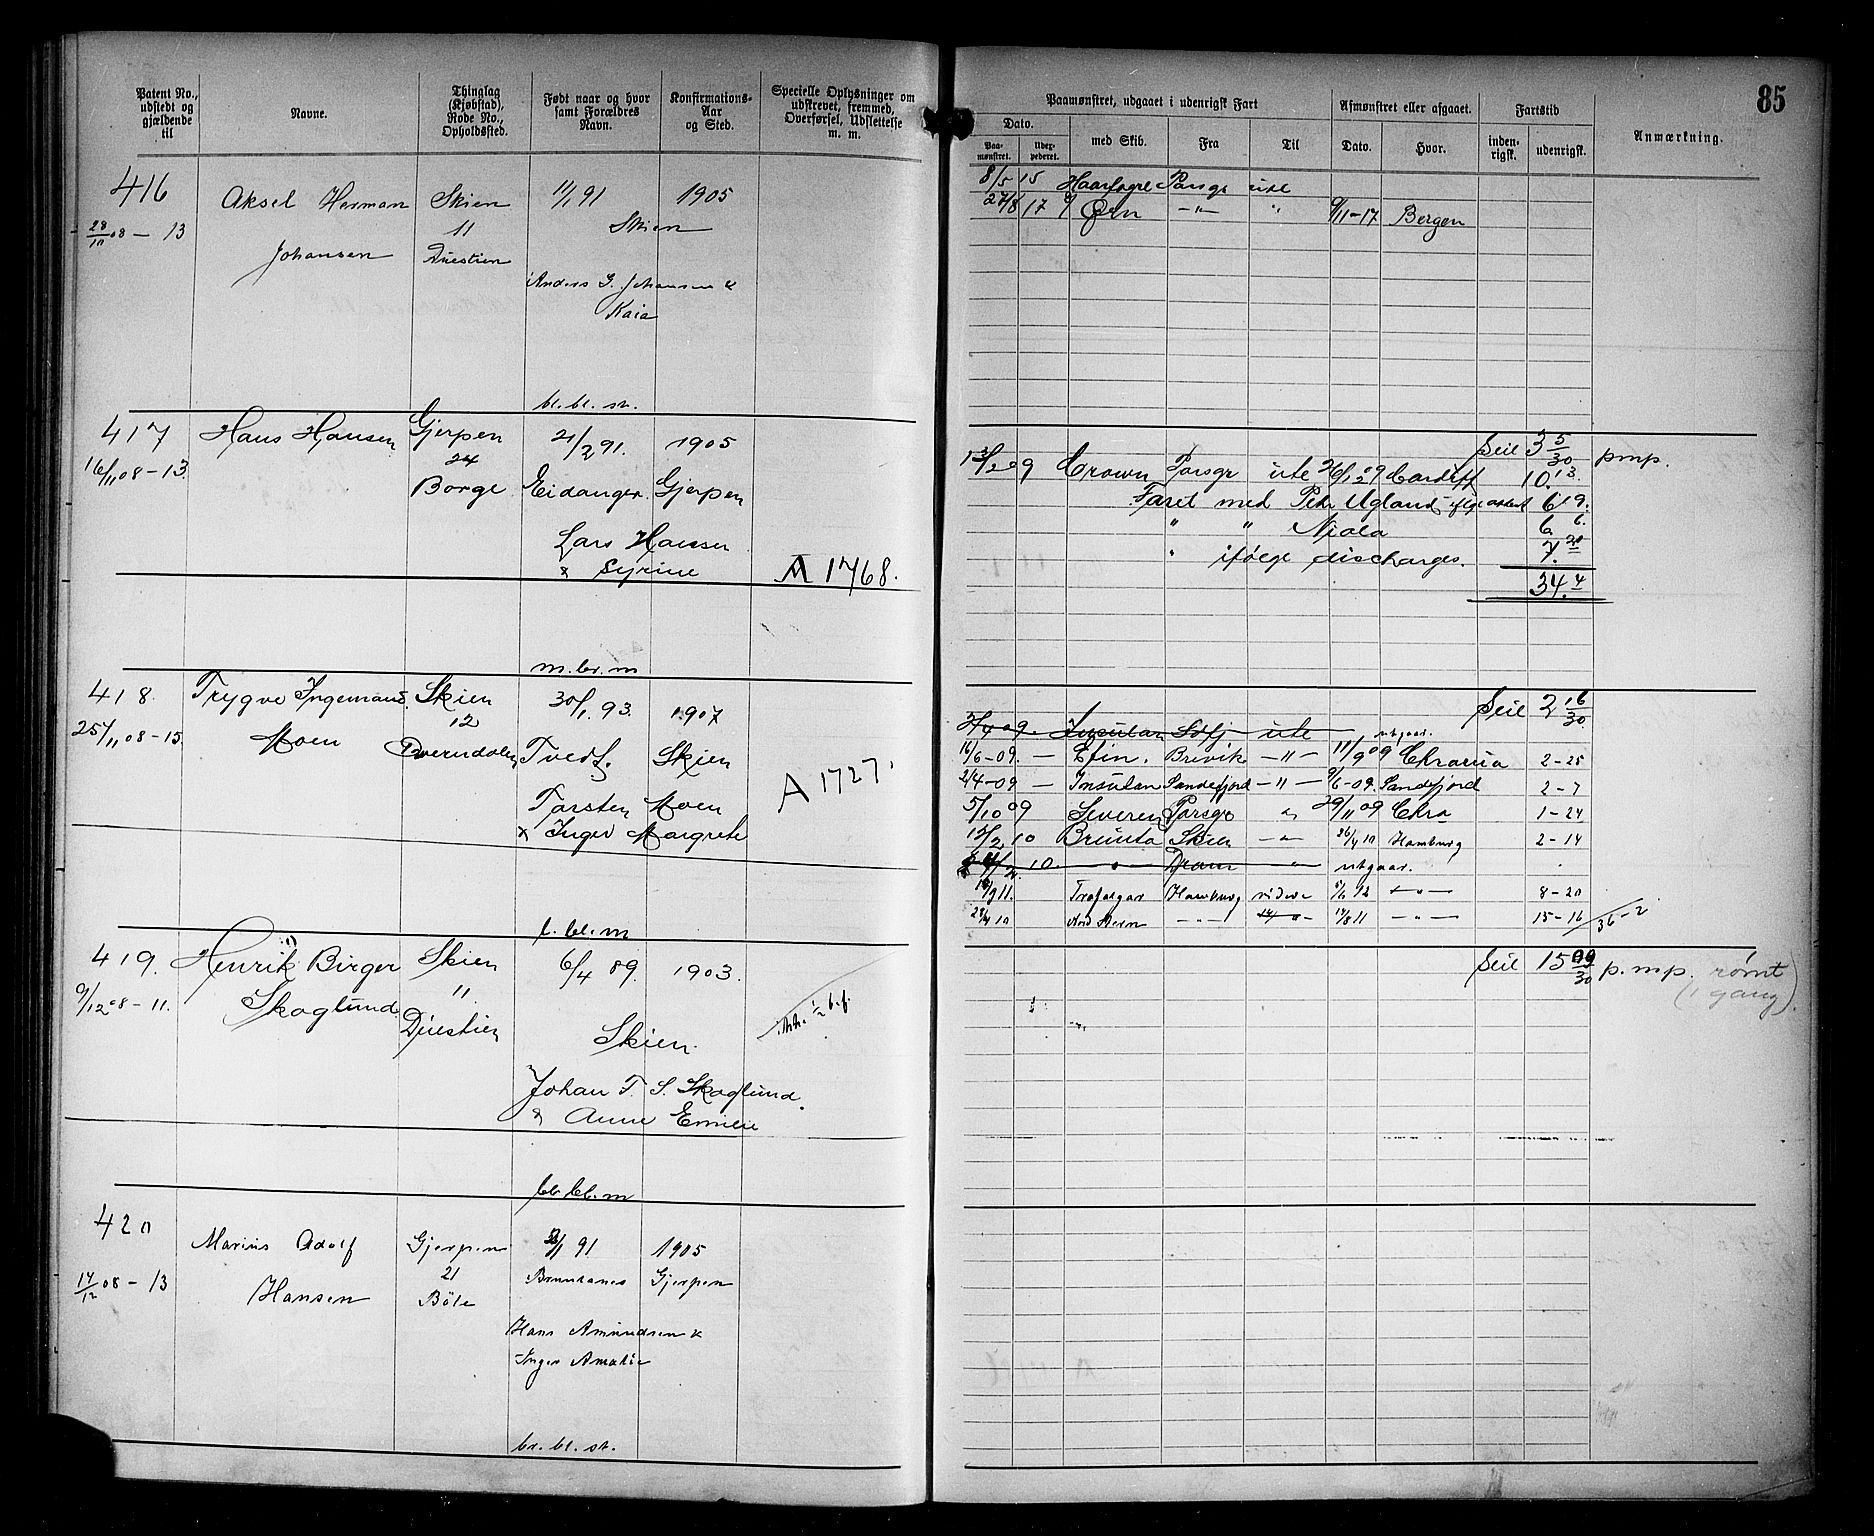 Patent No., udstedt og gjældende til
Navne.
Thinglag (Kjøbstad), Rode No., Opholdssted.
Født naar og hvor samt Forældres Navn.
Konfirmations- Aar og Sted.
Specielle Oplysninger om udskrevet, fremmed, Overførsel, Udslettelse m. m.
416
Aksel Herman Skien 11/1 91 1905
28/10 08 – 13 11 Skien
Johansen Duestien
Anders G. Johansen &
Kaia
bl. bl. st.
417 Hans Hansen Gjerpen 21/2 91. 1905
16/11 08 – 13. 24
Borge Eidanger. Gjerpen
Lars Hansen
& Syrine A 1768.
m. br. m
418. Trygve Ingemann Skien 30/1. 93. 1907
25/11 08 – 15. 12
Moen Tvedt. Skien
A 1727.
Torsten Moen
& Inger Margrete
l. bl. m
419. Henrik Birger Skien 6/4 89. 1903.
9/12 08 – 11. 11
Skoglund. Duestien
Skien.
Johan T. S. Skoglund.
& Anne Emilie
bl. bl. m
420
Marius Adolf Gjerpen 91 1905
14/12 08 – 13 21 Gjerpen
Hansen Böle
Hans Amundsen &
Inger Amalie
br. bl. st.
85
Paamønstret, udgaaet i udenrigsk Fart
Afmønstret eller afgaaet.
Fartstid
Anmærkning.
Dato.
Paa- mønstret.
Udex- pederet.
med Skib.
Fra
Til
Dato.
Hvor.
inden- rigsk.
udenrigsk.
8/5 15 Haarfagre Porsgr ute
27/8 17 Örn –"– " 9/11–17 Bergen
Seil 3 5/30 pmp.
09 Crown Porsgr ute 26/12 09 Cardiff 10. 13.
Faret med Peter Ugland ifølge attest 6 19.
" " Niola 6 6.
" ifölge discharges. 7. 20
34. 4
Seil 2 16/30
2/4 09. – Insulan Sdfj – ute – utgaar.
16/6–09. – Efin. Brevik –"– 11/9 09 Chrania 2–25
2/4–09 – Insulan Sandefjord –"– 9/6–09. Sandefjord 2–7
5/10 09 Severen Porsgr " 29/11 09 Chra 1–24
15/2 10 Skien –"– 26/4 10 Hamburg 2–14
10. –"– Dram " utgaar.
11. Trafalgar Hamburg videre 12 –"– 8–20
29/4 10 –"– –"– 11 –"– 15–16 36–2
Seil 15 /30 p.mp. rømt
(1 gang).